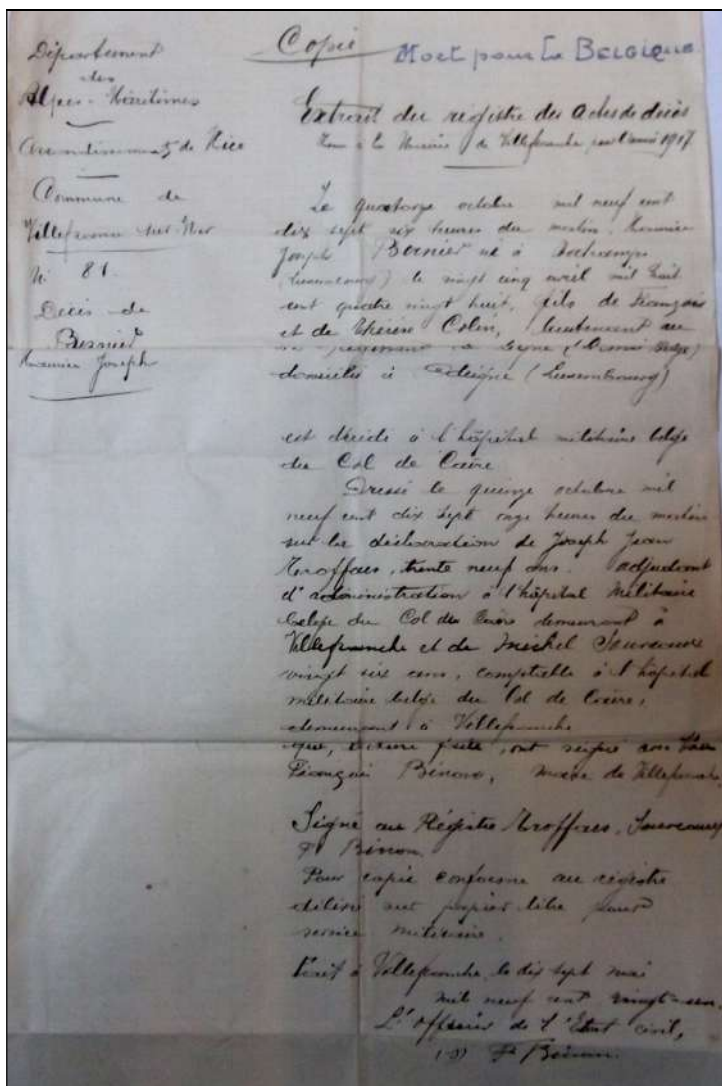 Copie
Mort pour la BELGIQUE
Département
des
Alpes-Maritimes
Arrondissement de Nice
Commune de
Villefranche sur Mer
N° 81.
Décès de
Bernier
Maurice Joseph
Extrait du régistre des actes de décès
de la Mairie de Villefranche pour l'année 1917
Le quatorze octobre mil neuf cent
dix sept six heures du matin, Maurice
Joseph Bernier né à Dochamps
(Luxembourg) le vingt cinq avril mil huit
cent quatre vingt huit, fils de François
et de Thérèse Colin, lieutenant au
régiment de ligne (Armée Belge)
domicilié à (Luxembourg)
est décédé à l'hôpital militaire belge
du Col de Caïre
Dressé le quinze octobre mil
neuf cent dix sept onze heures du matin
sur la déclaration de Joseph Jean
Troffaes, trente neuf ans, adjudant
d'administration à l'hôpital Militaire
belge du Col de Caïre demeurant à
Villefranche et de Michel
vingt six ans, comptable à l'hôpital
militaire belge du Col de Caïre,
demeurant à Villefranche
qui, lecture faite, ont signé avec
François Binon, maire de Villefranche.
Signé au Régistre Troffaes,
F. Binon.
Pour copie conforme au régistre
délivré sur papier libre pour
service militaire.
Fait à Villefranche, le dix sept mai
mil neuf cent vingt-un.
L'officier de l'Etat civil,
(s) F. Binon.